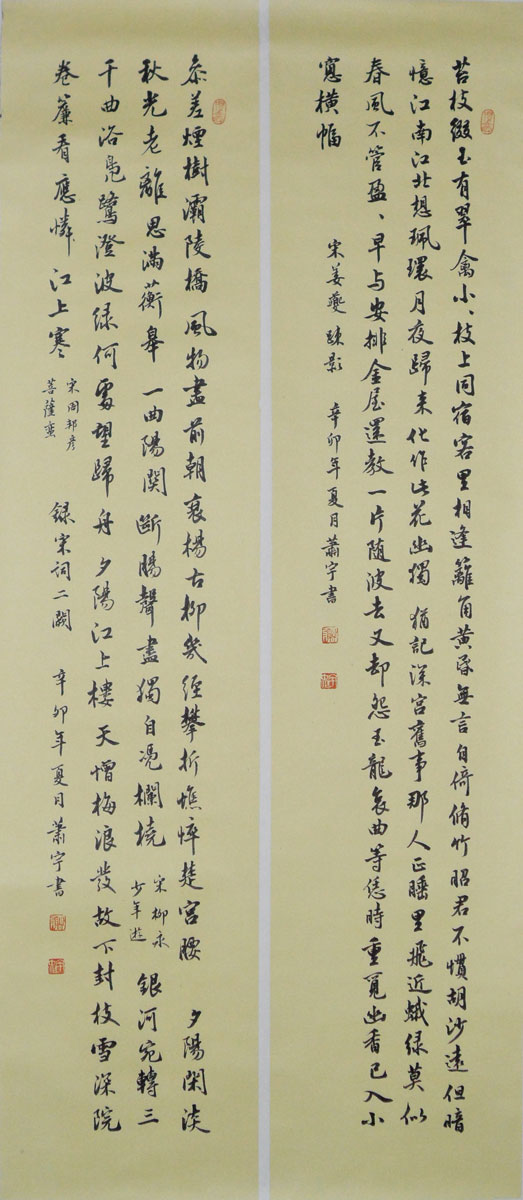 苔枝綴玉有翠禽小、枝上同宿客里相逢籬角黄昏無言自倚脩竹昭君不慣胡沙遠但暗
憶江南江北想珮環月夜歸来化作此花幽獨 猶記深宫舊事那人正睡里飛近蛾绿莫似
春風不管盈、早与安排金屋還教一片随波去又却怨玉龍哀曲等恁時重覓幽香已入小
窓横幅
宋姜夔 疎影 辛卯年夏月蕭宇書
参差煙樹灞陵橋風物盡前朝衰楊古柳幾經攀折憔悴楚宫腰 夕陽閑淡
秋光老離思滿蘅皋 一曲陽関断腸聲盡獨自凭欄橈
宋柳永
少年遊
銀河宛轉三
千曲浴鳧鷺澄波绿何處望歸舟 夕陽江上樓 天憎梅浪發故下封枝雪深院
卷簾看應憐江上寒
宋周邦彦
菩薩蛮
録宋词二闋 辛卯年夏月蕭宇書